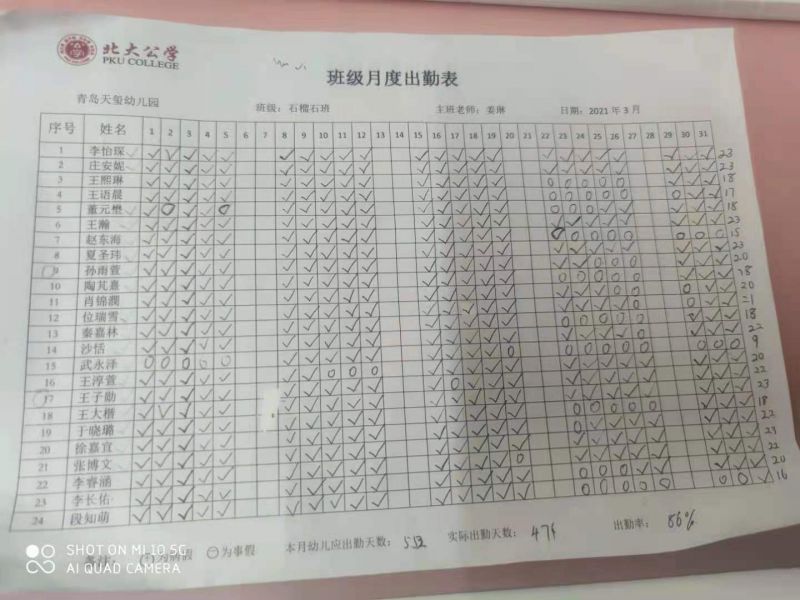 北大公学
PKU COLLEGE
班级月度出勤表
青岛天玺幼儿园 班级：石榴石班 主班老师：姜琳 日期：2021 年 3 月
序号 姓名 1 2 3 4 5 6 7 8 9 10 11 12 13 14 15 16 17 18 19 20 21 22 23 24 25 26 27 28 29 30 31
1 李怡琛 23
2 庄安妮 23
3 王熙琳 18
4 王语晨 17
5 董元懋 18
6 王瀚 23
7 赵东海 15
8 夏圣玮 23
9 孙雨萱 20
10 陶芃熹 18
11 肖锦濮 20
12 位瑞雪 21
13 秦嘉林 18
14 沙恬 22
15 武永泽 9
16 王淳萱 20
17 王子勋 22
18 王大楷 23
19 于晓璐 18
20 徐嘉宜 22
21 张博文 23
22 李睿涵 22
23 李长佑 20
24 段知萌 16
为病假 为事假 本月幼儿应出勤天数： 实际出勤天数： 476 出勤率： 86%
SHOT ON MI 10 5G
AI QUAD CAMERA